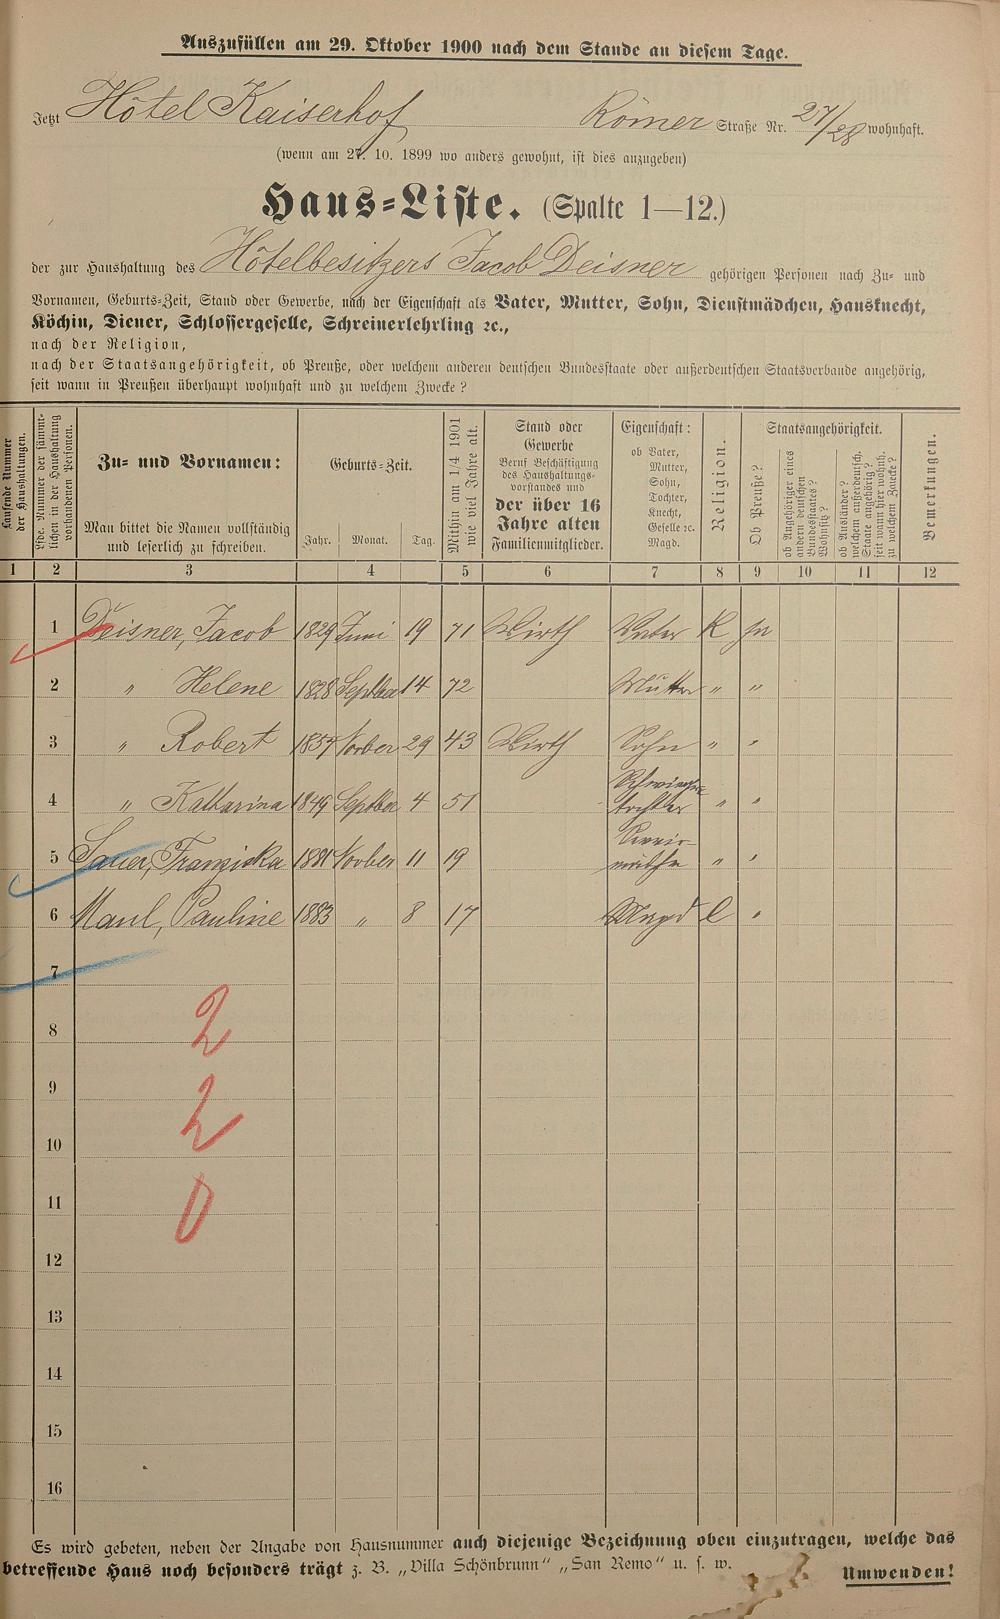 Auszufüllen am 29. Oktober 1900 nach dem Stande an diesem Tage.
Jetzt Hôtel Kaiserhof Römer Straße Nr. 27/28 wohnhaft.
(wenn am 27. 10. 1899 wo anders gewohnt, ist dies anzugeben)
Haus=Liste. (Spalte 1—12.)
der zur Haushaltung des Hôtelbesitzers Jacob Deisner gehörigen Personen nach Zu- und
Vornamen, Geburts-Zeit, Stand oder Gewerbe, nach der Eigenschaft als Vater, Mutter, Sohn, Dienstmädchen, Hausknecht,
Köchin, Diener, Schlossergeselle, Schreinerlehrling ꝛc.,
nach der Religion,
nach der Staatsangehörigkeit, ob Preuße, oder welchem anderen deutschen Bundesstaate oder außerdeutschen Staatsverbande angehörig,
seit wann in Preußen überhaupt wohnhaft und zu welchem Zwecke?
Laufende Nummer
der Haushaltungen.
Lfde. Nummer der sämmt-
lichen in der Haushaltung
vorhandenen Personen.
Zu= und Vornamen:
Man bittet die Namen vollständig
und leserlich zu schreiben.
Geburts-Zeit.
Jahr. Monat. Tag.
Mithin am 1/4 1901
wie viel Jahre alt.
Stand oder
Gewerbe
Beruf Beschäftigung
des Haushaltungs-
vorstandes und
der über 16
Jahre alten
Familienmitglieder.
Eigenschaft:
ob Vater,
Mutter,
Sohn,
Tochter,
Knecht,
Geselle ꝛc.
Magd.
Religion.
Staatsangehörigkeit.
Ob Preuße?
ob Angehöriger eines
andern deutschen
Bundesstaates?
Wohnsitz?
ob Ausländer?
welchem außerdeutsch.
Staate angehörig?
seit wann hier wohnh.
zu welchem Zwecke?
Bemerkungen.
1 2 3 4 5 6 7 8 9 10 11 12
1 Deisner, Jacob 1829 Juni 19 71 Wirth Vater K Ja
2 " Helene 1828 Septber 14 72 Mutter " "
3 " Robert 1857 Novber 29 43 Wirth Sohn " "
4 " Katharina 1849 Septber 4 51 Schwieger
tochter " "
5 Sauer, Franziska 1881 Novber 11 19 " "
6 Maul, Pauline 1883 " 8 17 Magd "
7
8 2
9
10 2
11 0
12
13
14
15
16
Es wird gebeten, neben der Angabe von Hausnummer auch diejenige Bezeichnung oben einzutragen, welche das
betreffende Haus noch besonders trägt z. B. „Villa Schönbrunn" „San Remo" u. s. w.
Umwenden!